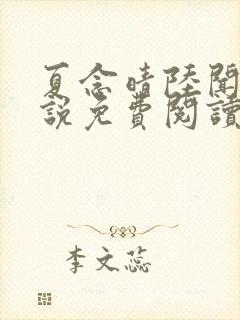 夏念晴陸聞
說免費閱讀
李文蕊